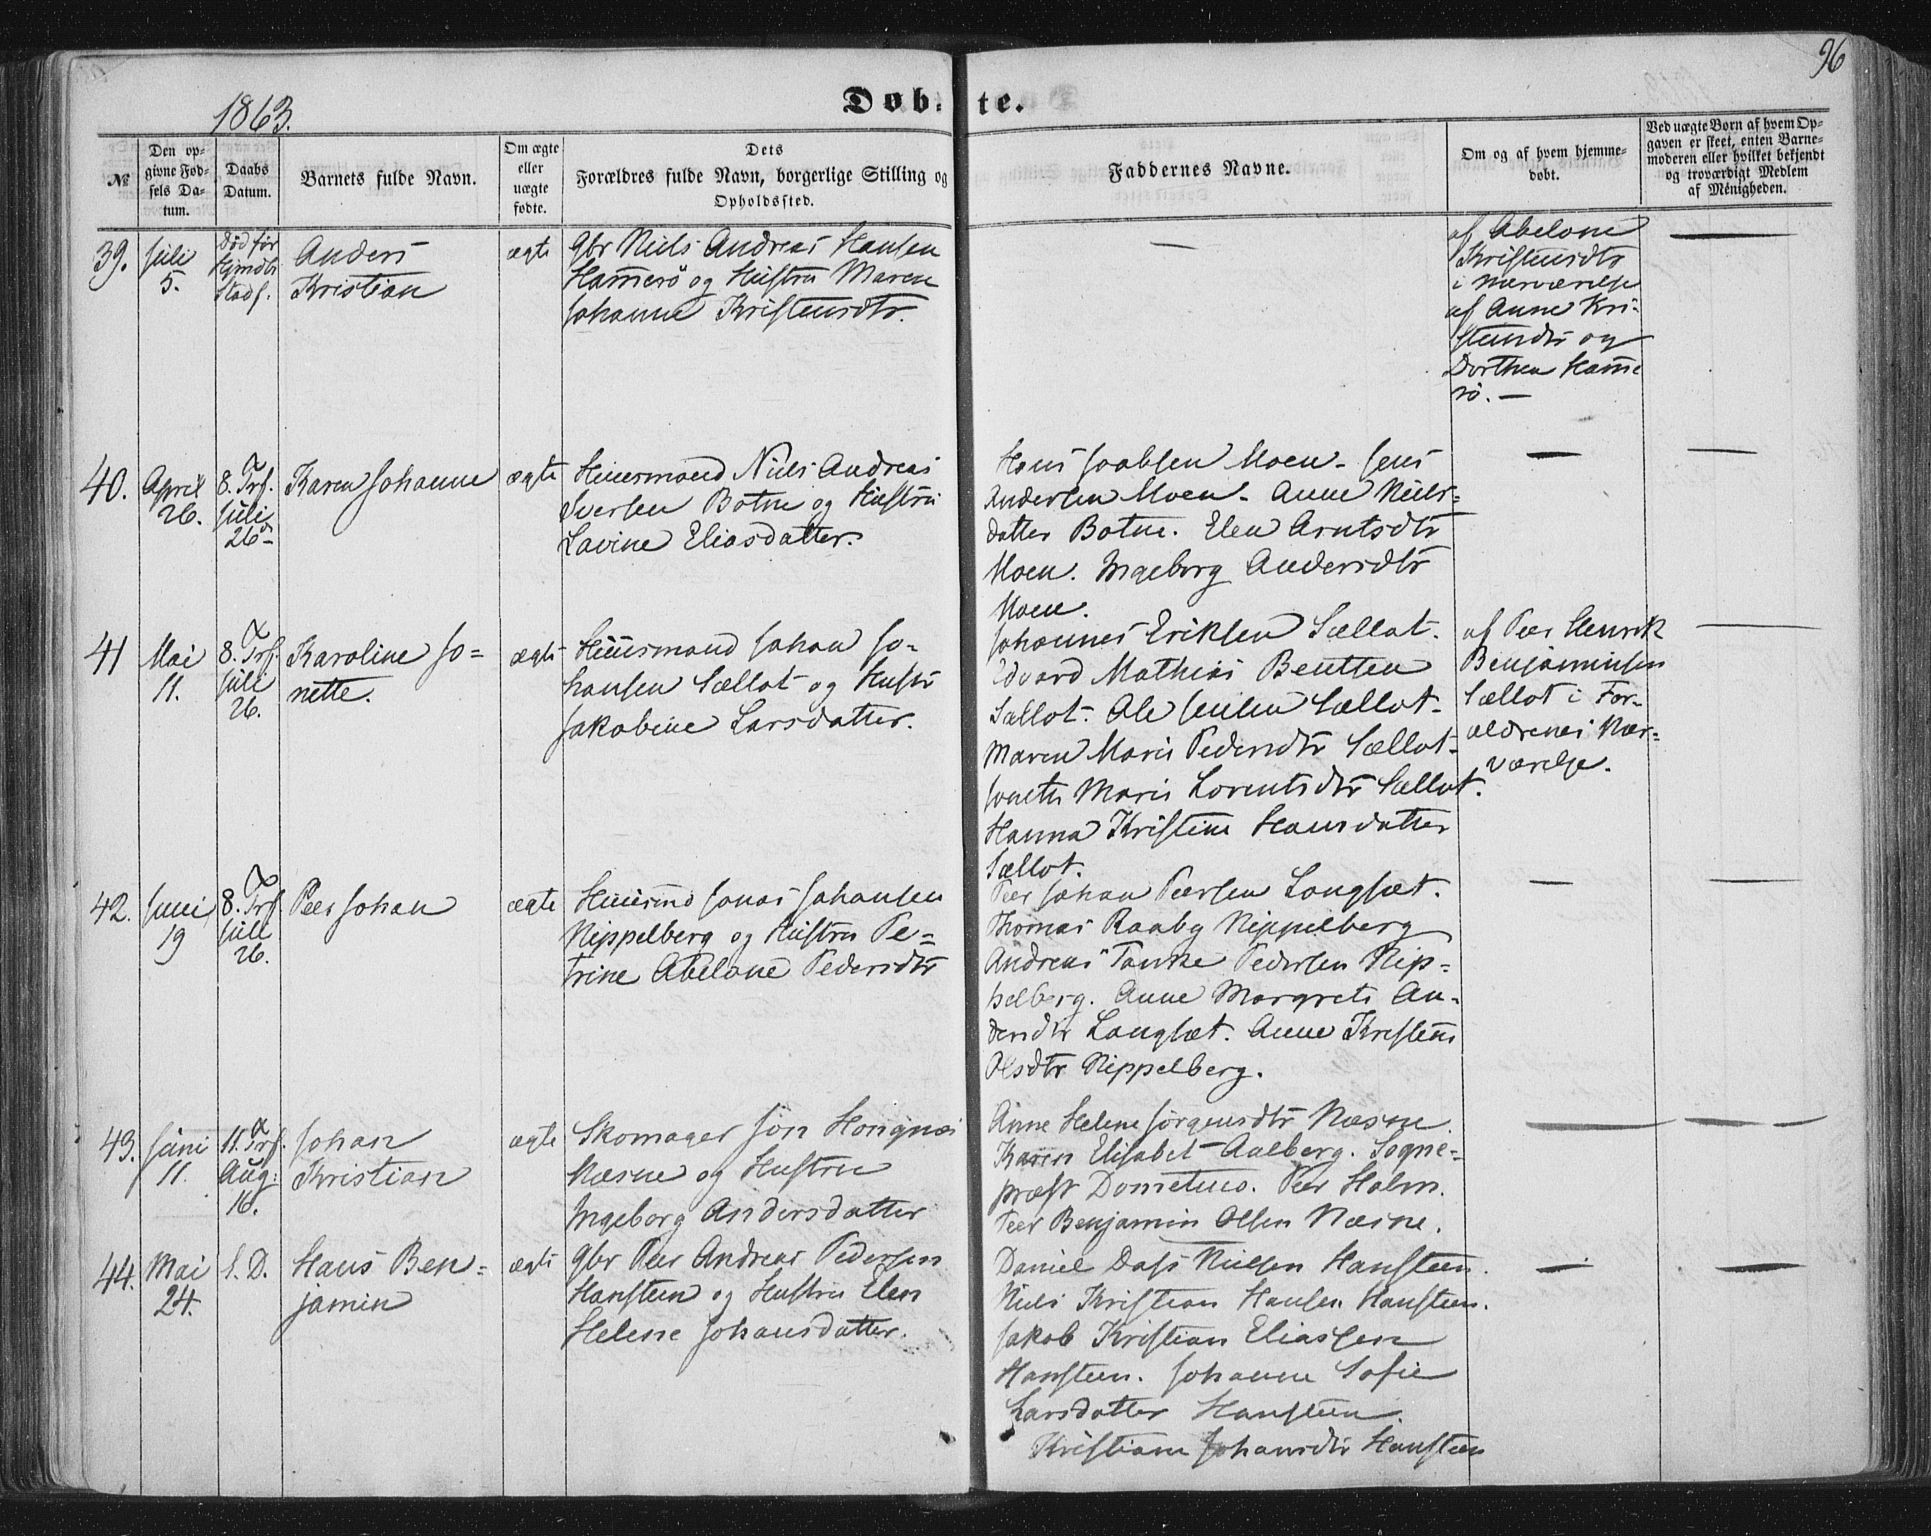 96
1863.
Døb- te.
№
Den op-
givne Fød-
sels Da-
tum.
Daabs
Datum.
Barnets fulde Navn.
Om ægte
eller
uægte
fødte.
Dets
Forældres fulde Navn, borgerlige Stilling og
Opholdssted.
Faddernes Navne.
Om og af hvem hjemme-
døbt.
Ved uægte Børn af hvem Op-
gaven er skeet, enten Barne-
moderen eller hvilket bekjendt
og troværdigt Medlem
af Menigheden.
39.
Juli
5.
Død før
Stadf.
Anders
Kristian
ægte
Gbr Niels Andreas Hansen
Hammerö og Hustru Maren
Johanne Kristensdtr.
—
af Abelone
Kristensdtr
i Nærværelse
af Anne Kri-
stensdtr og
Dorthea Hamme
rö. —
—
40.
April
26.
8. Trf.
Juli
26
Karen Johanne
ægte
Huusmand Niels Andreas
Iversen Botne og Hustru
Lavine Eliasdatter.
Hans Jaabsen Moen - Jens
Andersen Moen - Anne Niels-
datter Botne. Elen Arntsdtr
Moen. Ingeborg Andersdtr
Moen.
—
—
41
Mai
11.
8. Trf.
Juli
26.
Karoline Jo-
nette.
ægte
Huusmand Johan Jo-
hansen Sællot og Hustr
Jakobine Larsdatter.
Johannes Eriksen Sællot.
Edvard Mathias Bentsen
Sællot. Ole Jensen Sællot-
Maren Marie Pedersdtr Sællot-
Jonette Marie Lorentsdtr Sællot.
Hanna Kristine Hansdatter
Sællot.
af Peer Henrik
Benjaminsen
Sællot i For-
ældrenes Nær-
værelse.
—
42.
Juni
19
8. Trf
Juli
26.
Peer Johan
ægte
Huusmd Jonas Johansen
Nippelberg og Hustru Pe-
trine Abelone Pedersdtr
Peer Johan Peersen Langsæt.
Thomas Raaby Nippelberg
Andreas Tanke Pedersen Nip-
pelberg. Anne Margrete An-
dersdtr Langsæt. Anne Kristens
Olsdtr Nippelberg.
—
—
43.
Juni
11.
11. Trf.
Aug:
16.
Johan
Kristian
ægte
Skomager Jon
Næsne og Hustru
Ingeborg Andersdatter
Anne Helene Jörgensdtr Næsne.
Karen Elisabet Aalberg. Sogne-
præst Peer Holm.
Peer Benjamin Olsen Næsne.
—
—
44.
Mai
24.
S. D.
Hans Ben-
jamin
ægte
Gbr Peer Andreas Pedersen
Hansteen og Hustru Elen
Helene Johansdatter.
Daniel Dass Nielsen Hansteen.
Niels Kristian Hansen Hansteen.
Jakob Kristian Eliassen
Hansteen. Johanne Sofie
Larsdatter Hansteen.
Kristiane Johansdtr Hansteen
—
—